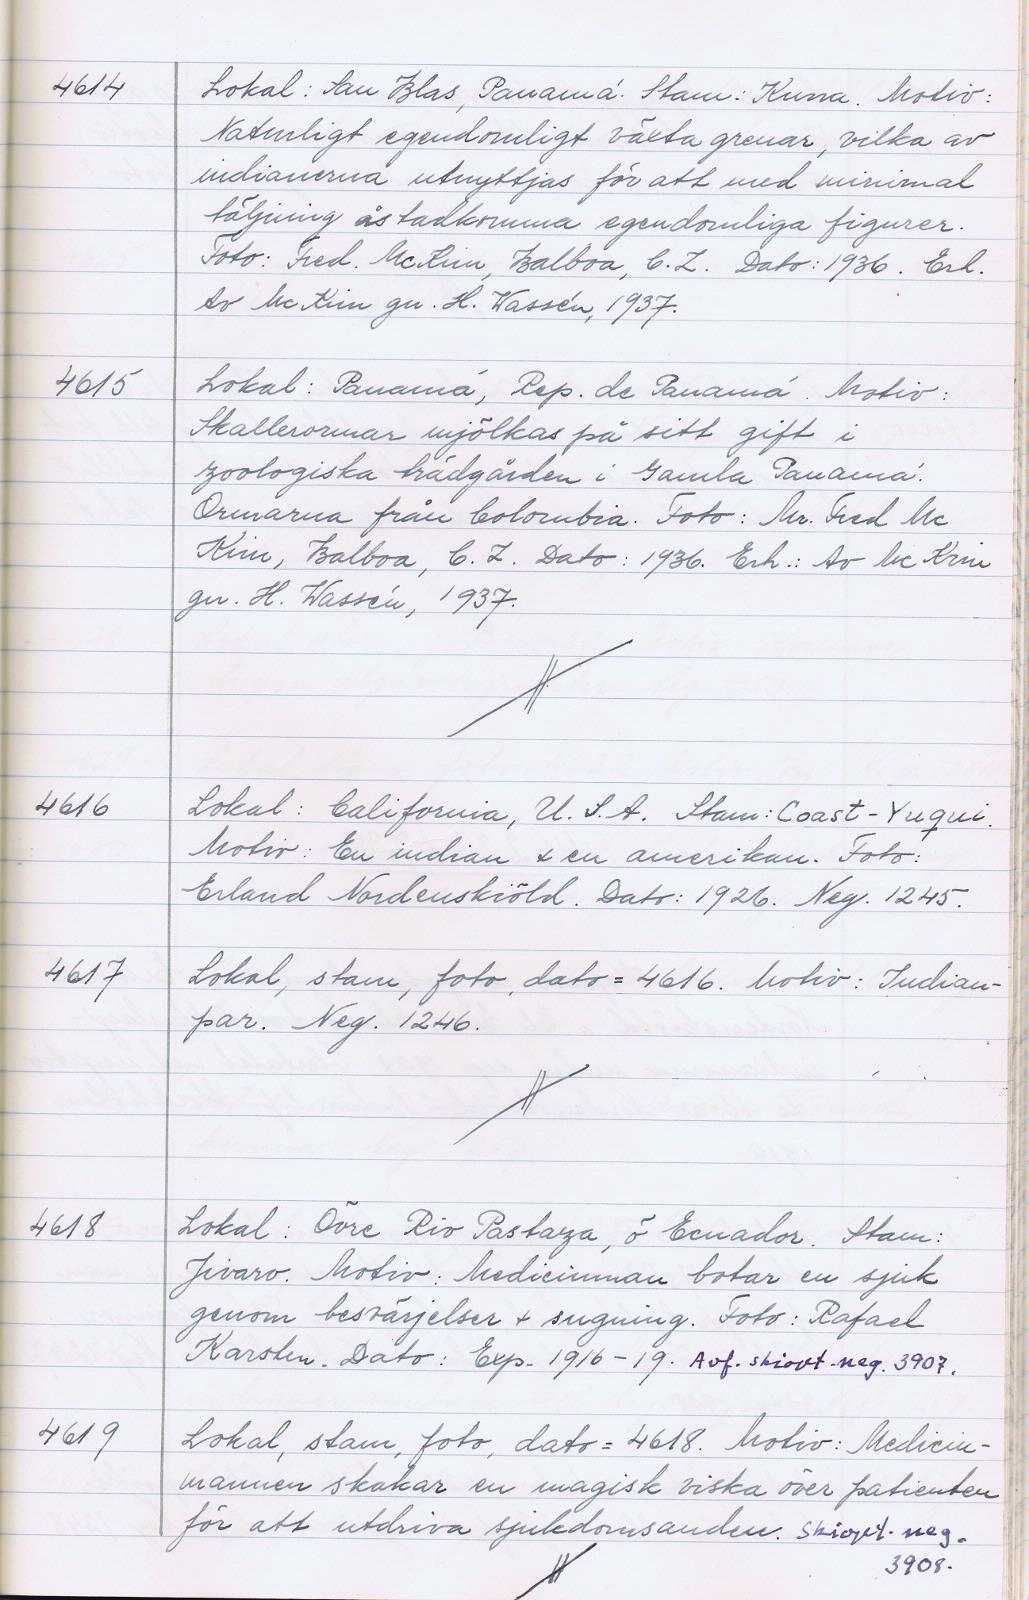 4614 Lokal: San Blas, Panamá. Stam: Kuna. Motiv:
Naturligt egendomligt växta grenar, vilka av
indianerna utnyttjas för att med minimal
täljning åstadkomma egendomliga figurer.
Foto: Fred. McKim, Balboa, C. Z. Dato: 1936. Erh.
av Mc Kim gn. H. Wassén, 1937.
4615 Lokal: Panamá, Rep. de Panamá. Motiv:
Skallerormar mjölkas på sitt gift i
zoologiska trädgården i Gamla Panamá.
Ormarna från Colombia. Foto: Mr. Fred Mc
Kim, Balboa, C. Z. Dato: 1936. Erh.: Av Mc Kim
gn. H. Wassén, 1937.
4616 Lokal: California, U. S. A. Stam: Coast-Yuqui.
Motiv: En indian & en amerikan. Foto:
Erland Nordenskiöld. Dato: 1926. Neg. 1245.
4617 Lokal, stam, foto, dato = 4616. Motiv: Indian-
par. Neg. 1246.
4618 Lokal: Övre Rio Pastaza, ö Ecuador. Stam:
Jivaro. Motiv: Medicinman botar en sjuk
genom besvärjelser & sugning. Foto: Rafael
Karsten. Dato: Exp. 1916-19. Avf. skiopt-neg. 3907.
4619 Lokal, stam, foto, dato = 4618. Motiv: Medicin-
mannen skakar en magisk viska över patienten
för att utdriva sjukdomsanden. Skiopt-neg.
3908.